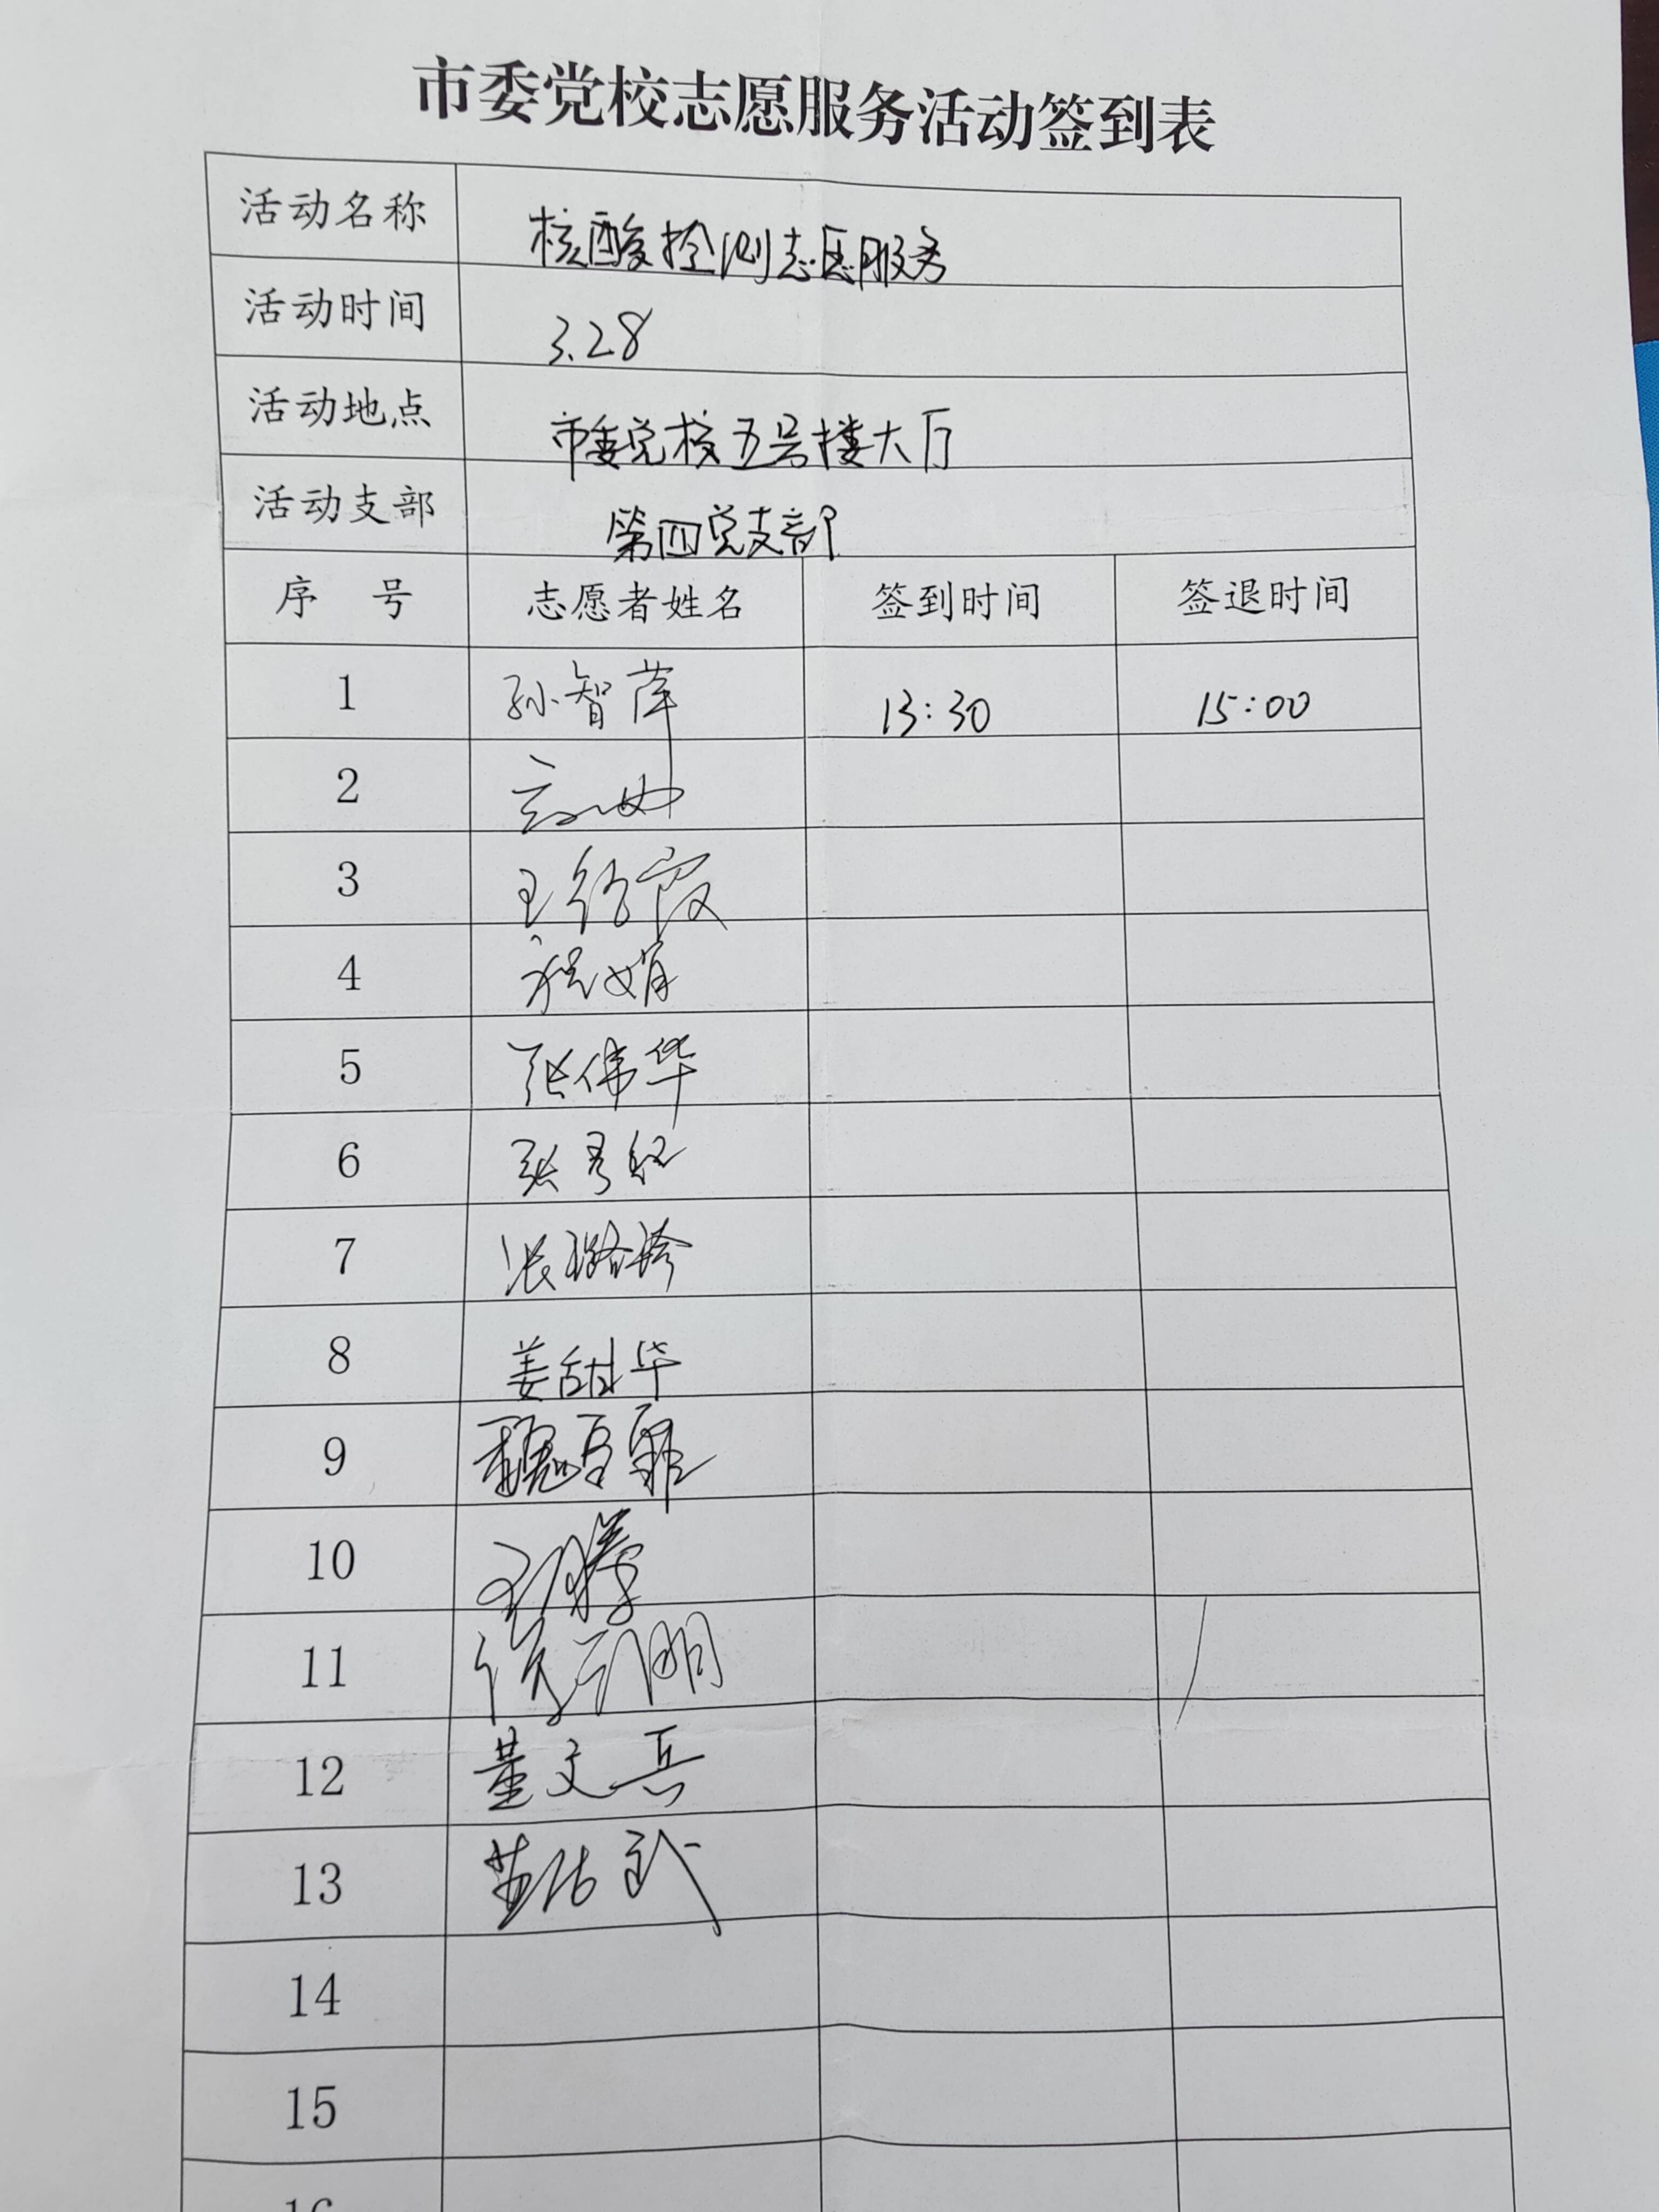 市委党校志愿服务活动签到表
活动名称 核酸检测志愿服务
活动时间 3.28
活动地点 市委党校五号楼大厅
活动支部 第四党支部
序 号 志愿者姓名 签到时间 签退时间
1 孙智萍 13:30 15:00
2
3 王 霞
4 程娟
5 张伟华
6 张秀红
7 张璐玲
8 姜甜华
9 魏
10 王腾
11 侯 明
12 董文兵
13
14
15
16